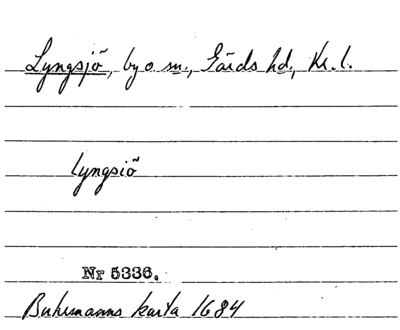 Lyngsjö, by o. sn., Gärds hd., Kr. l.
Lyngsiö
Nr 5336.
Buhrmanns karta 1684